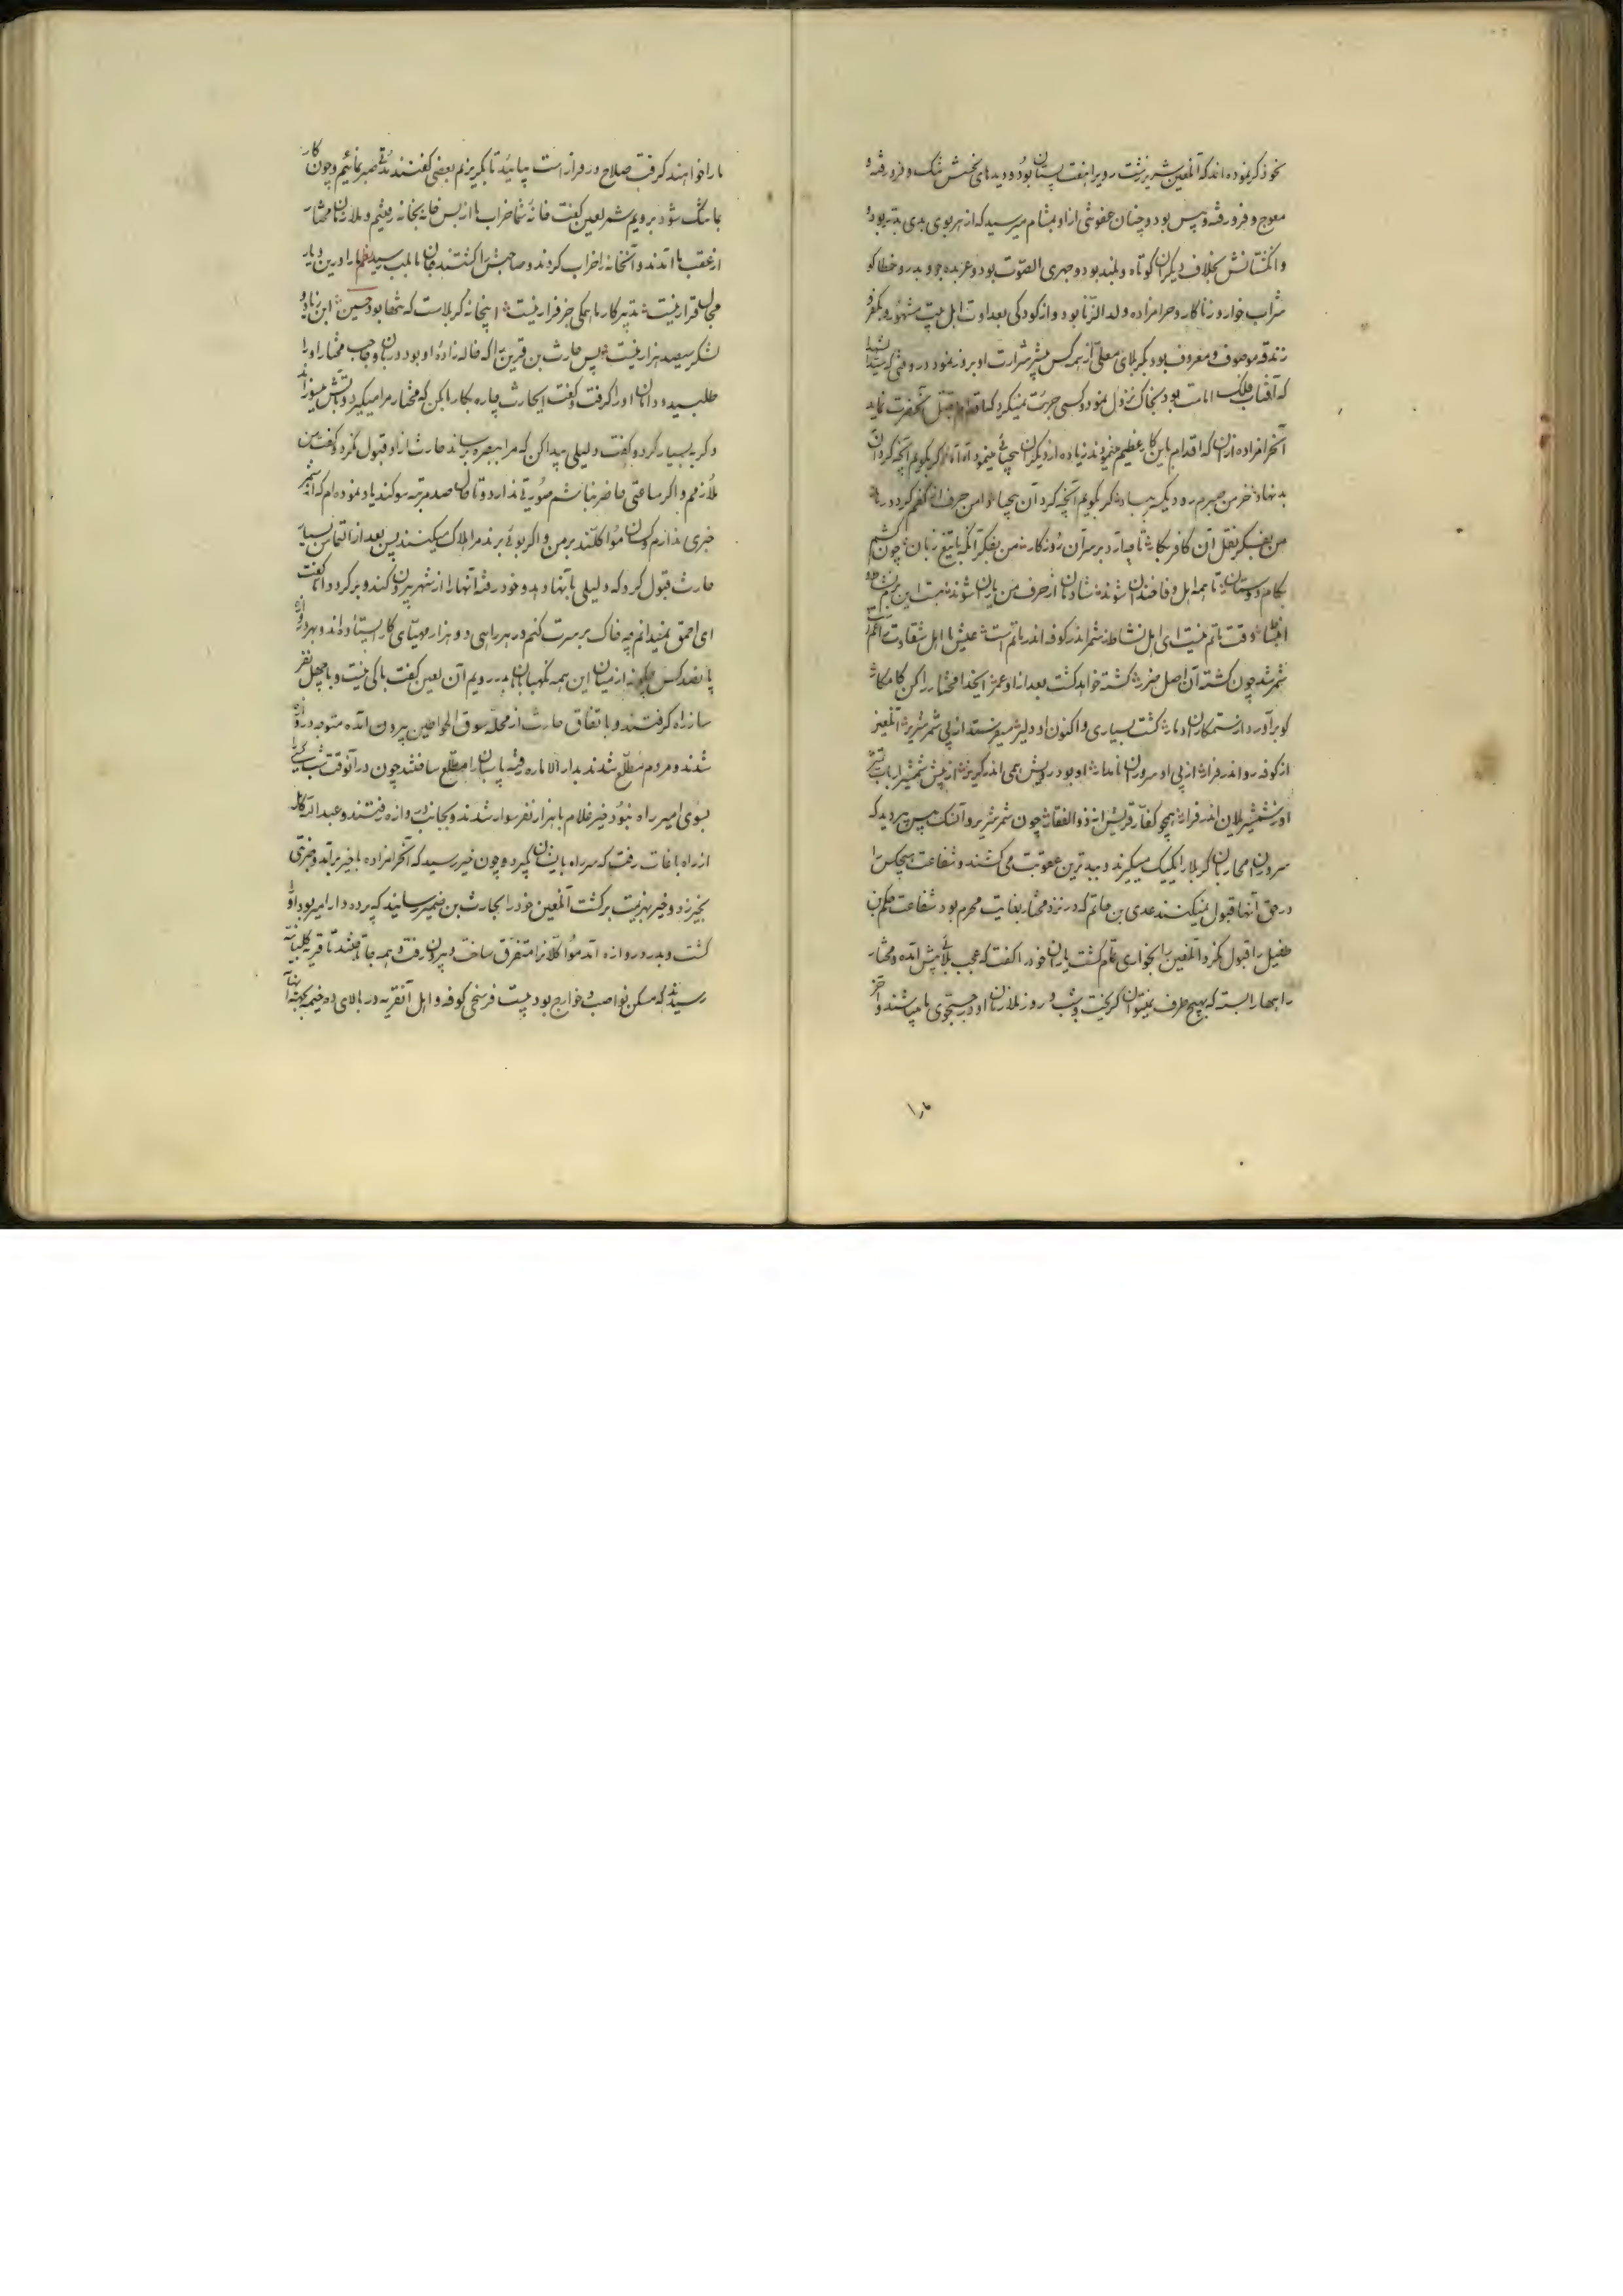 خود ذکر نموده اند که آنلعین شریر زشت رو پرا هفت پستان بود و دیدهای نحسش تنک و فرو رفته و
معوج و فرو رفته و پیس بود و چنان عفونتی از او بمشام میرسید که از هر بوی بدی بدتر بود و
وانکشتانش بخلاف دیکران کوتاه و بلند بود و جهری الصوت بود و عربده جو و بدرو خطا کو
شراب خوار و زناکار و حرامزاده و ولد الزنا بود و از کودکی بعداوت اهل بیت مشهور و بکفر
زندقه موصوف و معروف بود بکربلای معلی از همه کس بیشتر شرارت او بروز نمود در وقتی که سید شهدا
که آفتاب فلک امامت بود بخاک نزول نمود و کسی جرئت نمیکرد که اقدام بقتل آنحضرت نماید
آنحرامزاده از آن که اقدام باین کار عظیم مینمودند زیاده از دیکران بیحیائی مینمود آه آه اکر بکویم آنچه کرد آن
بد نهاد خرمن صبرم رود یکسر بباد کر بکویم آنچه کرد آن بیحیا
من بفکر نقل آن کافر بکار تا چه آرد بر سر آن روزکار من بفکر آنکه با تیغ زبان چون کشم
بکام دوستان تا همه اهل وفا خندان شوند شادمان از حرف من یاران شوند
وقت ماتم نیست ای اهل نشاط شمر اندر کوفه اندر ماتم است عیش با اهل شقاوت
شمر شد چون کشته آن اصل ضرر کشته خواهد کشت بعد از او عمر ایخدا مختار را کن کامکار
کو بر آورد از ستمکاران دمار کشت بسیاری و اکنون او دلیر میفرستد از پی شمر شریر آنلعین
از کوفه رو اندر فرار از پی او سروران نامدار او بود رویش همی اندر کریز از پیش شمشیر
او ز شمشیر یلان اندر فرار همچو کفار قریش از ذوالفقار چون شمر شریر و آن سک بی پیر دید که
سروران محاربان کربلا را یکیک میکیرند و ببدترین عقوبت می کشند و شفاعت هیچکس را
در حق آنها قبول نمیکنند عدی بن حاتم که در نزد مختار بغایت محرم بود شفاعت حکم بن
طفیل را قبول نکرد و آنلعین را بخواری تمام کشت یاران خود را کفت که عجب بلائی پیش آمده و مختار
راهها را بسته که بهیچ طرف نمیتوان کریخت و شب و روز ملازمان او در جستجوی ما میباشند و آخر
مارا
ما را خواهند کرفت صلاح در فرار است بیائید تا بکریزیم بعضی کفتند مدتی صبر نمائیم و چون کار
بما تنک شود برویم شمر لعین کفت خانه شما خراب ما از پس خانه بخانه رفتیم و ملازمان مختار
از عقب ما آمدند و آنخانه را خراب کردند و صاحبش را کشتند جان ما بلب رسید نظم ما را درین دیار
مجال قرار نیست تدبیر کار ما همکی جز فرار نیست اینجا نه کربلاست که تنها بود حسین ابن زیاد و
لشکر سیصد هزار نیست پس حارث بن قرین را که خاله زاده او بود و دربان و حاجب مختار او را
طلبید و دامان او را کرفت و کفت ایحارث چاره بکار ما بکن که مختار مرا میکیرد و بآتش میسوزاند
و کریه بسیار کرد و کفت دلیلی پیدا کن که مرا ببصره برساند حارث از او قبول نکرد و کفت من
ملازمم و اکر ساعتی حاضر نباشم صورتی ندارد و تا حال صد مرتبه سوکند یاد نموده ام که از شمر
خبری ندارم و کسان موکلند بر من و اکر بوئی برند مرا هلاک میکنند پس بعد از التماس بسیار
حارث قبول کرد که دلیلی با آنها دهد و خود رفته آنها را از شهر بیرون کند و بر کردد اما کفت
ای احمق نمیدانم چه خاک بر سرت کنم در هر راهی دو هزار مهیای کار ایستاده اند و بهر دروازه
پانصد کس چکونه از میان این همه نکهبانان بدر رویم آن لعین کفت باکی نیست و با چهل نفر
ساز راه کرفتند و با تفاق حارث از محله سوق الخواطین بیرون آمده متوجه دروازه
شدند و مردم مطلع شدند بدار الاماره رفته پاسبانان را مطلع ساختند چون در آنوقت شب کسی را
بسوی امیر راه نبود خیر غلام با هزار نفر سوار شدند و بجانب دروازه رفتند و عبدالله کامل
از راه باغات رفت که سر راه بایشان کیرد و چون خبر رسید که آنحرامزاده با خیر برآمد و ضربی
بخیر زد و خیر بهزیمت برکشت آنلعین خود را بحارث بن ضمیر رسانید که پرده دار امیر بود او
کشت و بدر دروازه آمد موکلانرا متفرق ساخت و بیرون رفت و همه جا تاختند تا قریه کلبانیه
رسیدند که مسکن نواصب و خوارج بود بیست فرسخی کوفه و اهل آنقریه در بالای ده خیمه بجهة آنها